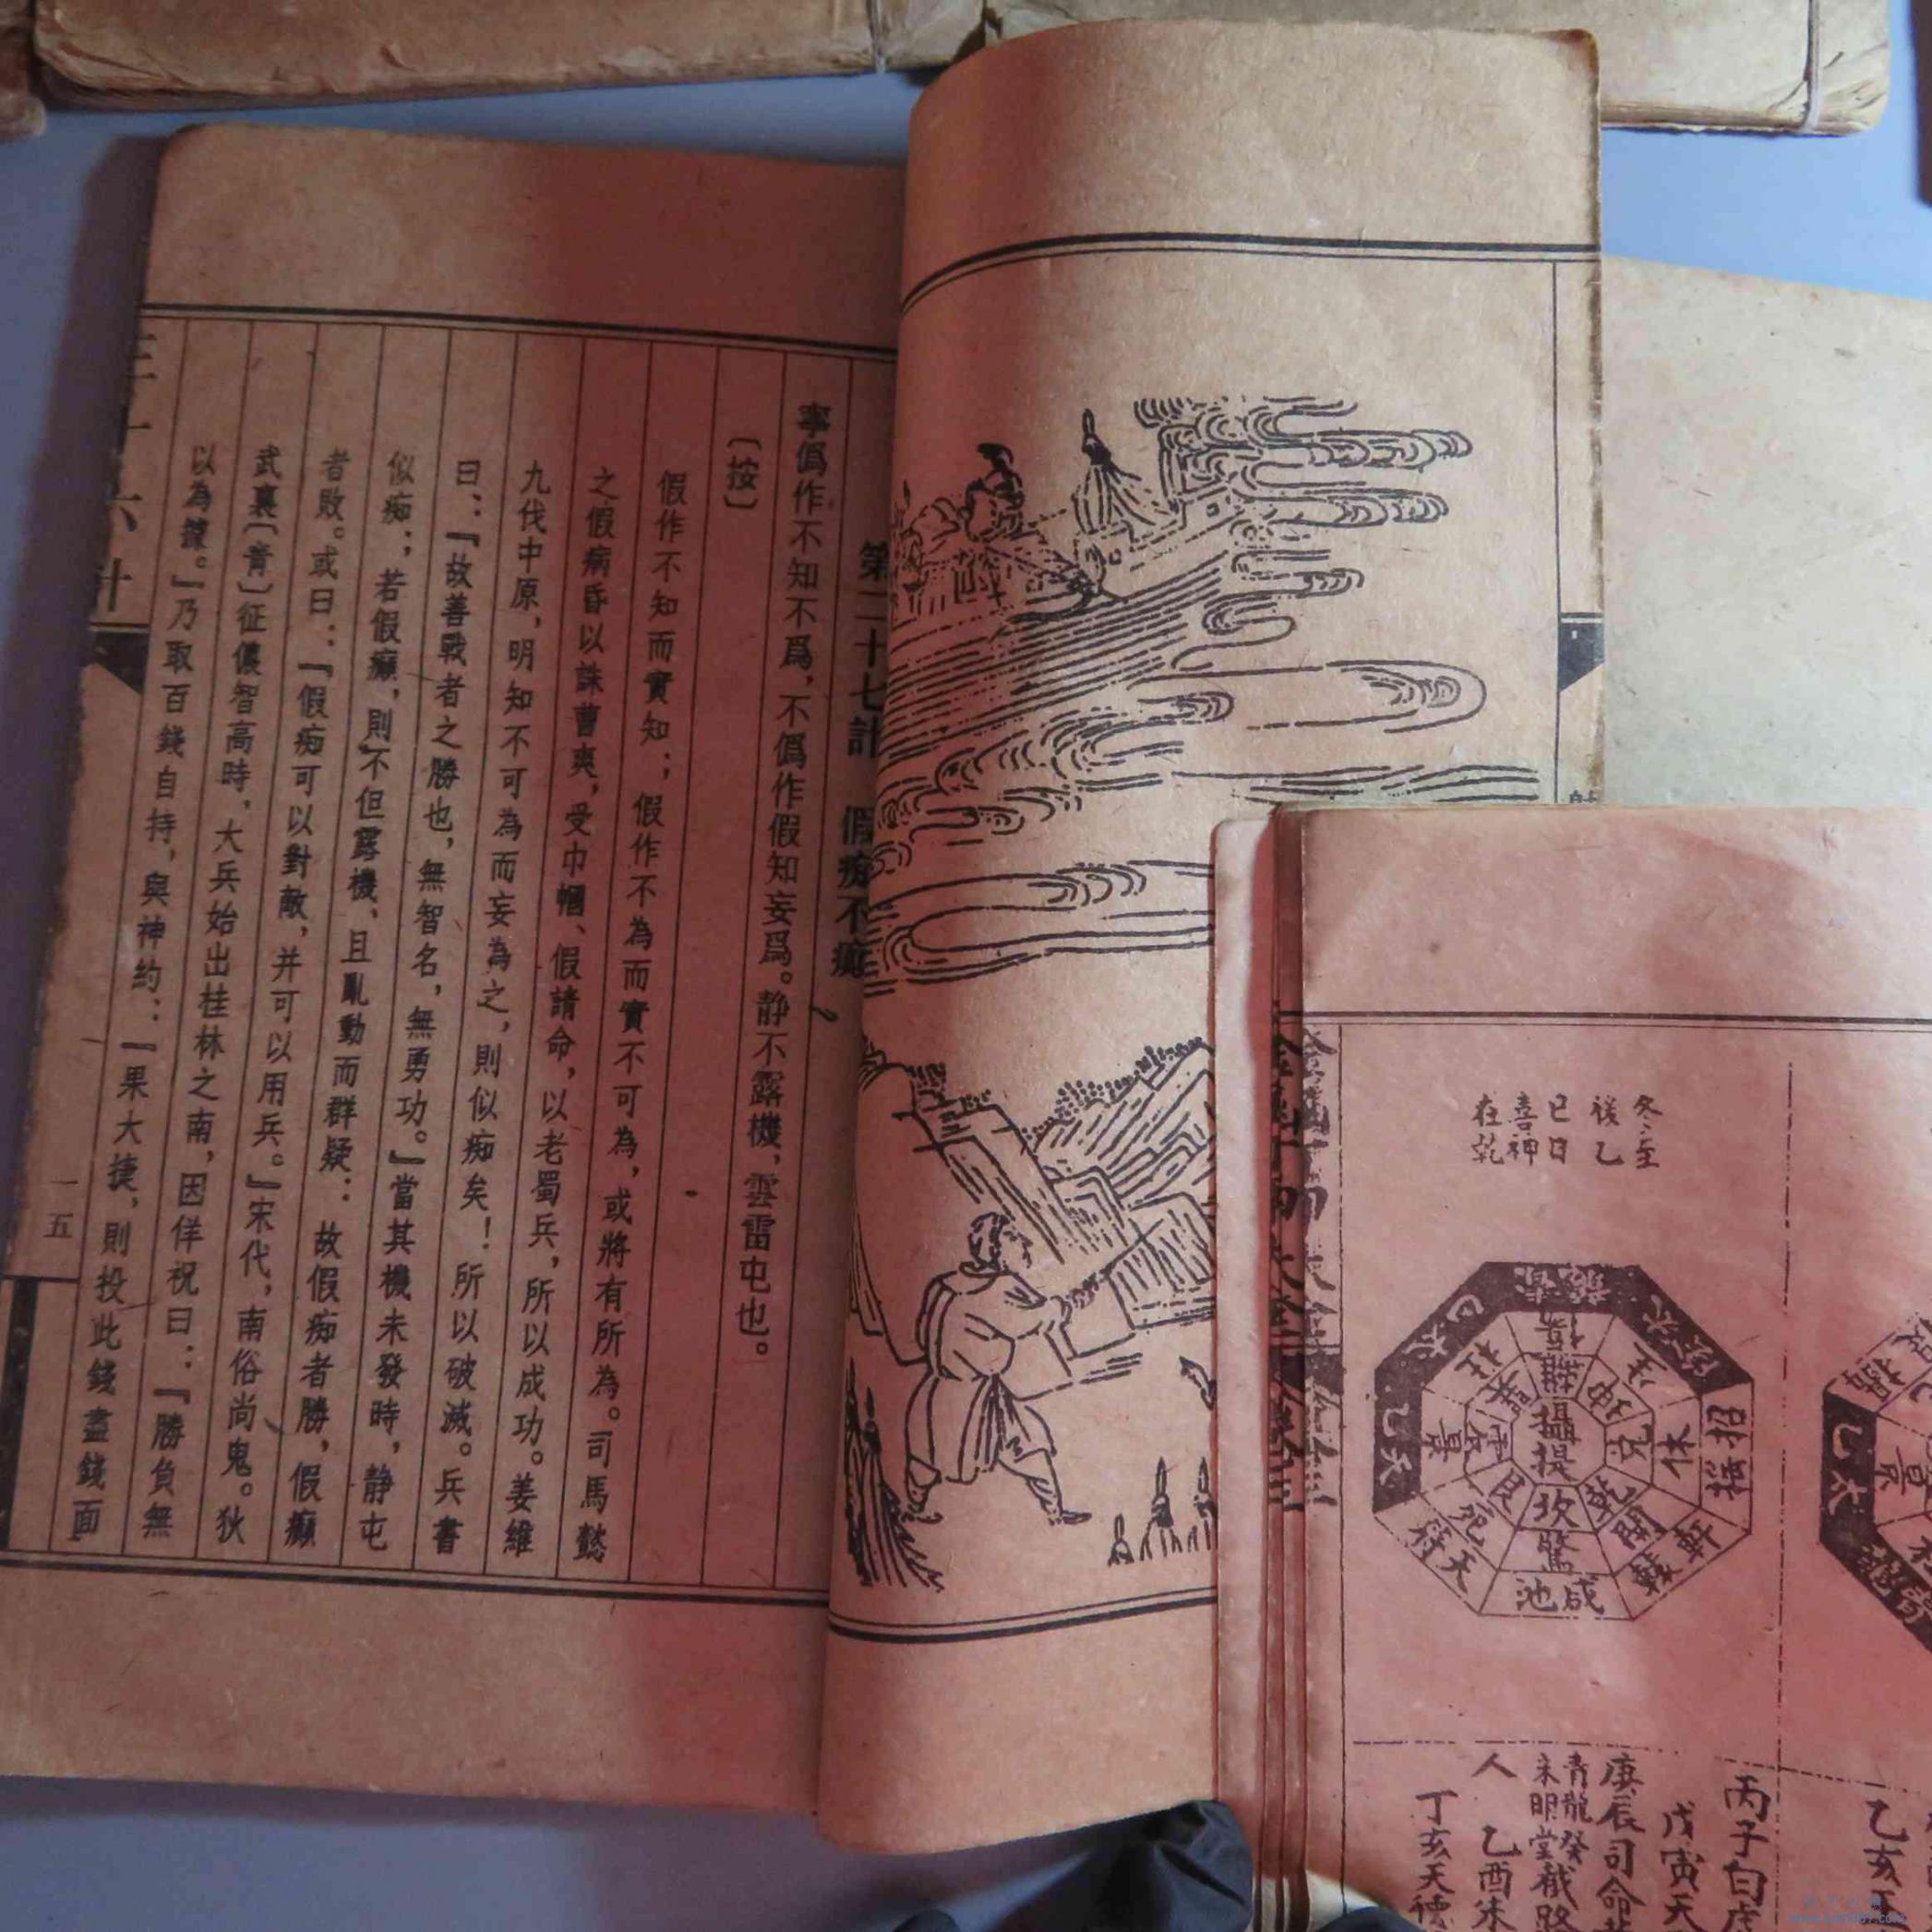 第二十七計 假痴不癲
寧僞作不知不爲，不僞作假知妄爲。静不露機，雲雷屯也。
〔按〕
假作不知而實知；假作不為而實不可為，或將有所為。司馬懿
之假病昏以誅曹爽，受巾幗、假請命，以老蜀兵，所以成功。姜維
九伐中原，明知不可為而妄為之，則似痴矣！所以破滅。兵書
曰：『故善戰者之勝也，無智名，無勇功。』當其機未發時，静屯
似痴；若假癲，則不但露機，且亂動而群疑：故假痴者勝，假癲
者敗。或曰：『假痴可以對敵，并可以用兵。』宋代，南俗尚鬼。狄
武襄〔青〕征儂智高時，大兵始出桂林之南，因佯祝曰：『勝負無
以為據。』乃取百錢自持，與神約：『果大捷，則投此錢盡錢面
三十六計
一五
冬至
後乙
巳日
喜神
在乾
攝提
坎
乾
兌
坤
艮
驚
開
休
死
景
咸池
軒轅
招搖
太陰
青龍
天乙
天符
丙子白虎
戊寅天
庚辰司命
青龍癸
未明堂截路
人 乙酉朱
丁亥天德
乙亥